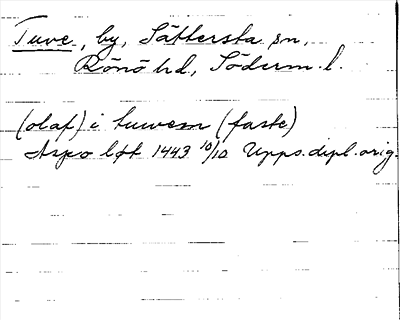 Tuve, by, Sättersta sn,
Rönö hd, Söderm. l.
(olaf) i tuwem (faste)
Aspo lft 1443 10/10 Upps. dipl. orig.